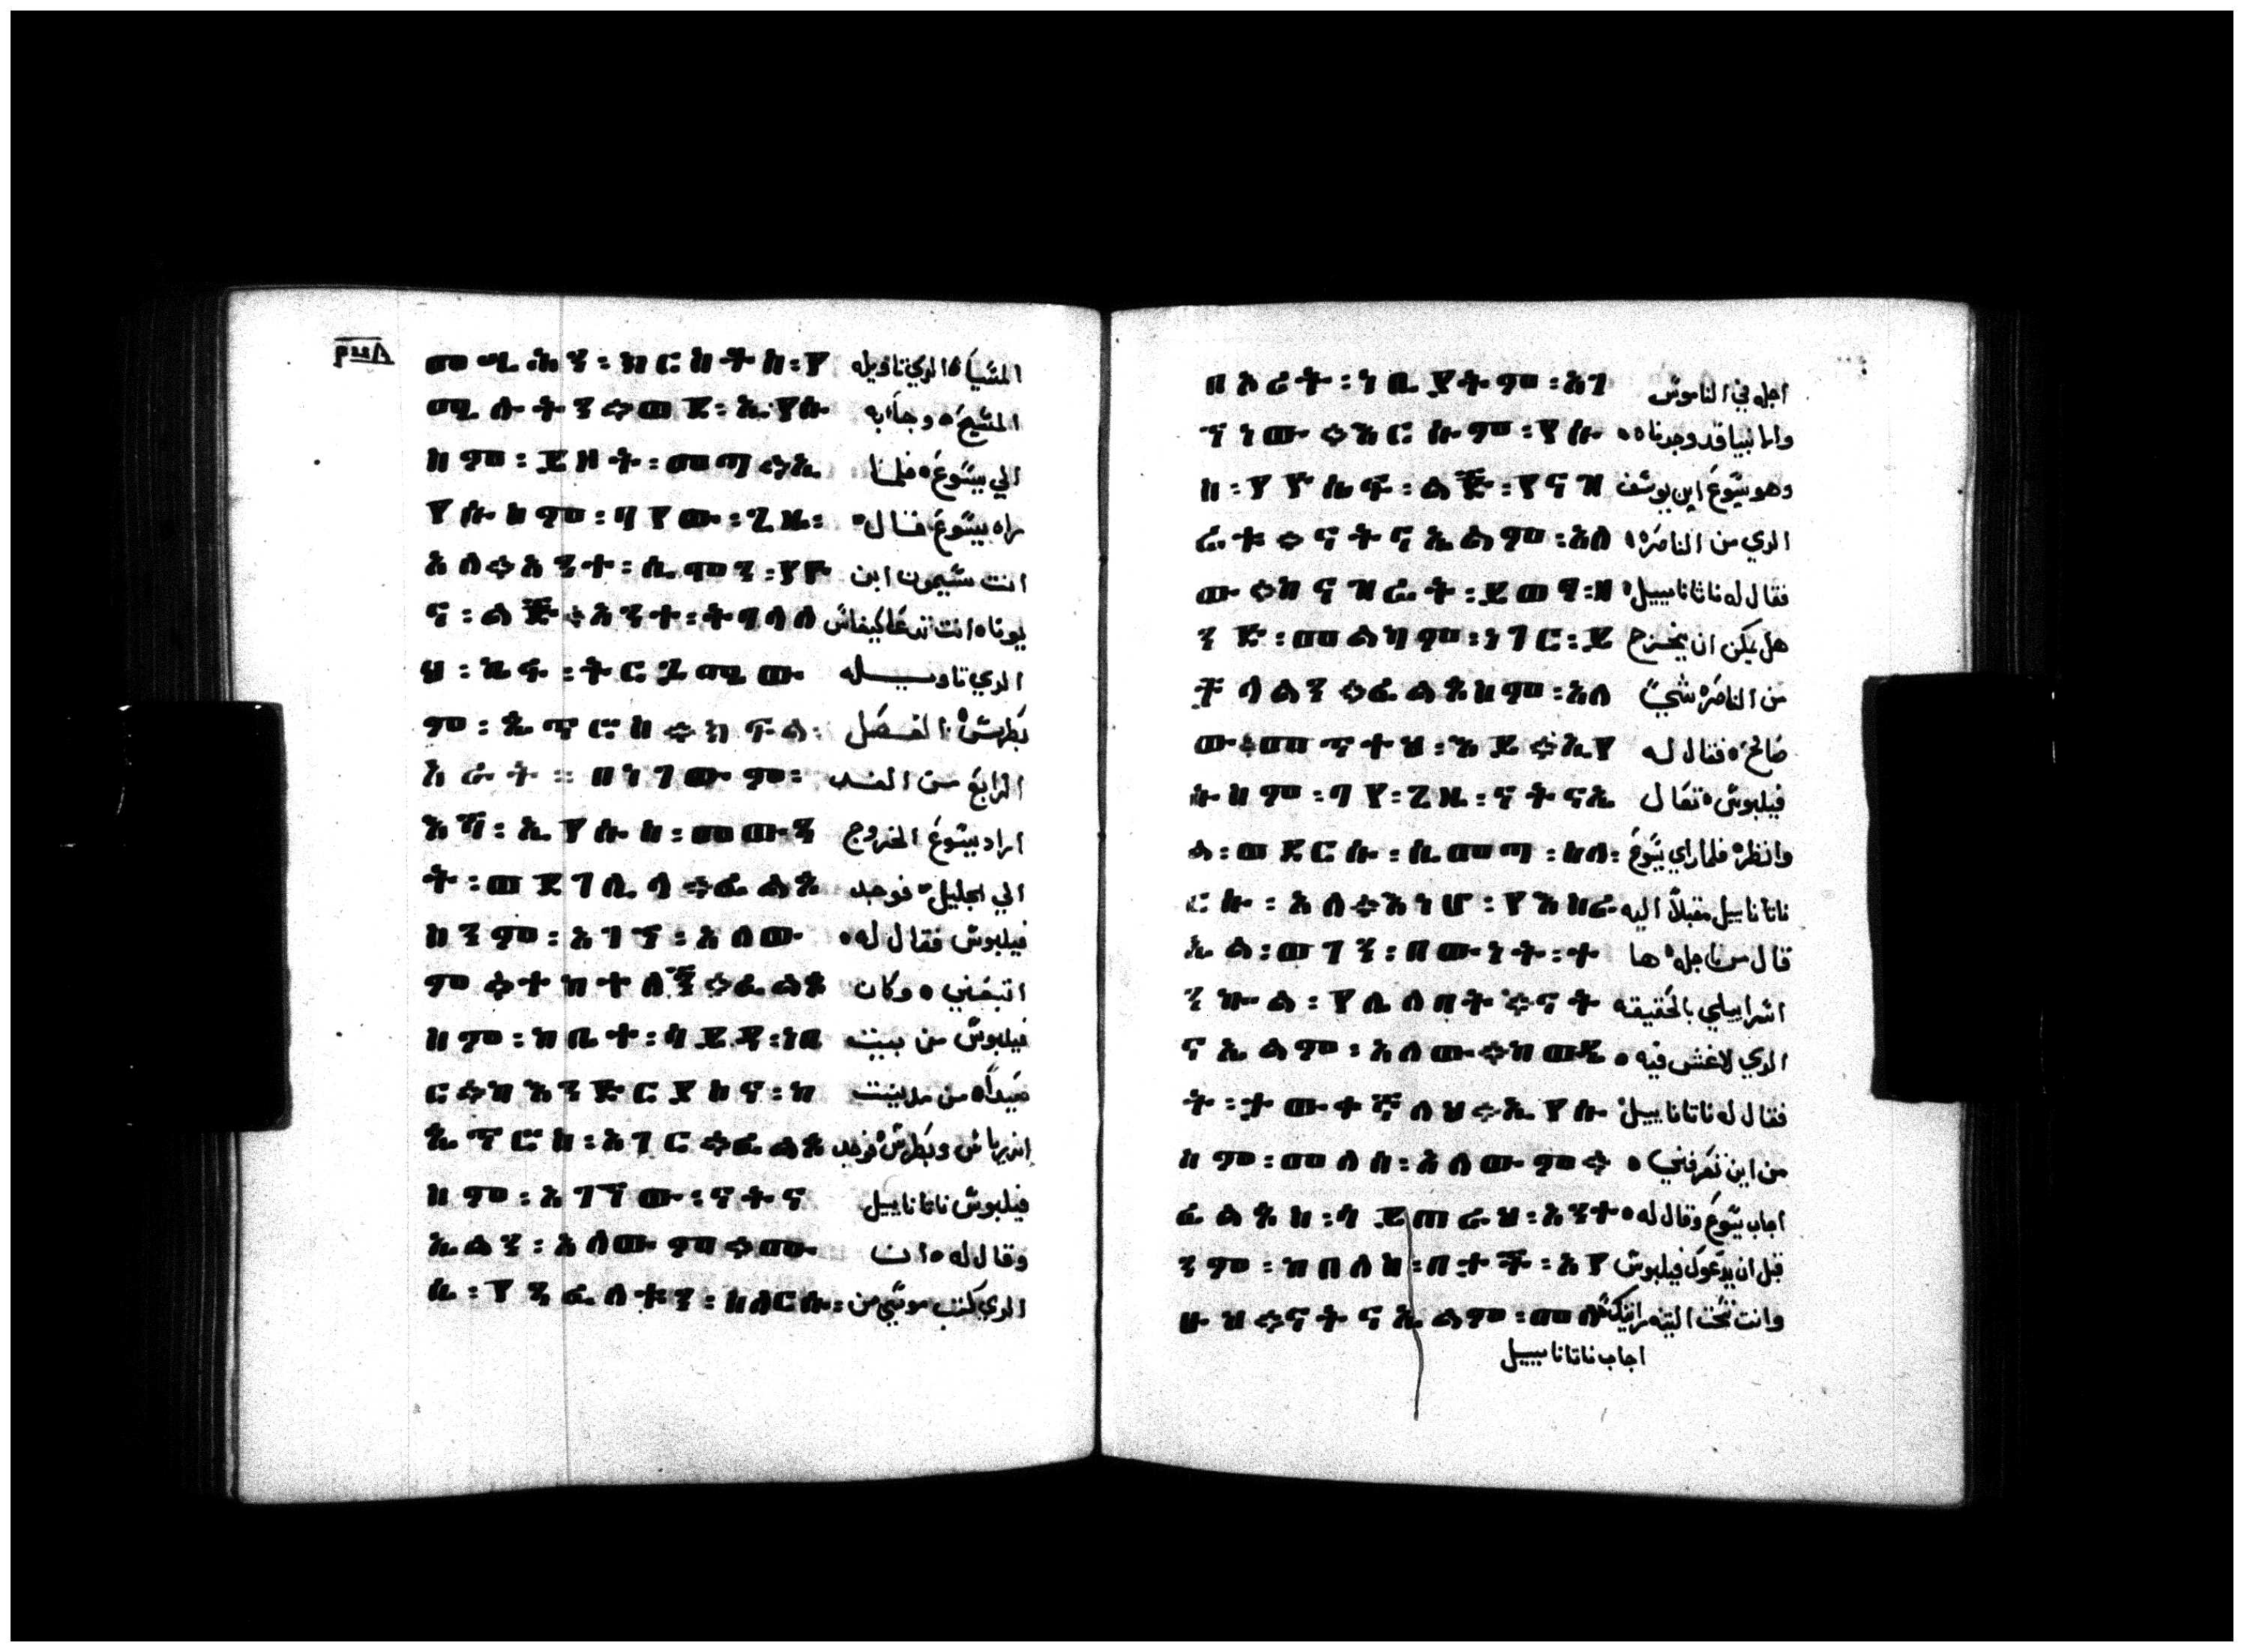 መሢሕን : ክርስትስ : የ المشياه الدي تاويله
ሚሉትን። ወደ : ኢየሱ المشيح ه وجا به
ስም : ይዞት : መጣ። ኢ الي يشوع ه فلما
የሱስም : ባየው : ጊዜ : راه يشوع قال
አለ። አንተ : ሲሞን : የዮ انت شيمون ابن
ና : ልጅ። አንተ : ትባላለ يونا ه انت تدعا كيفاش
ህ : ኬፋ : ትርጓሜው الدي تاويله
ም : ጴጥሮስ። ክፍል : بطرس ه الفصل
አራት ። በነገውም : الرابع من الغد
እሻ : ኢየሱስ : መውጣ اراد يشوع الخروج
ት : ወደገሊላ። ፊልጶ الي الجليل فوجد
ስንም : አገኘ : አለው فيلبوش فقال له
ም። ተከተለኝ። ፊልጶ اتبعني ه وكان
ስም : ከቤተ : ሳይዳ : ነበ فيلبوش من بيت
ር። ከእንድርያስና : ከ صيدا ه من مدينت
ጴጥሮስ : አገር። ፊልጶ اندرياش وبطرش فوجد
ስም : አገኘው : ናትና فيلبوش ناتاناييل
ኤልን : አለውም። ሙ وقال له ه ان
ሴ : የጻፈለትን : ስለርሱ : الدي كتب موشي من
በኦሪት : ነቢያትም : አገ اجله في الناموش
ኘነው። እርሱም : የሱ وانبيا قد وجدناه
ስ : የዮሴፍ : ልጅ : የናዝ وهو يشوع ابن يوشف
ሬት። ናትናኤልም : አለ الدي من الناصره
ው። ከናዝሬት : ይወጣ : ዘ فقال له ناتاناييل
ንድ : መልካም : ነገር : ይ هل يمكن ان يخرج
ቻላልን። ፊልጶስም : አለ من الناصره شي
ው። መጥተህ : እይ። ኢየ صالح ه فقال له
ሱስም : ባየ : ጊዜ : ናትናኤ فيلبوش تعال
ል : ወደርሱ : ሲመጣ : ስለ وانظره فلما راي يشوع
ርሱ : አለ። እነሆ : የእስራ ناتاناييل مقبلا اليه
ኤል : ወገን : በውነት : ተ قال من اجله ها
ንኮል : የሌለበት። ናት اشراييلي بالحقيقه
ናኤልም : አለው። ከወዴ الدي لا غش فيه
ት : ታውቀኛለህ። ኢየሱ فقال له ناتاناييل
ስም : መለሰ : አለውም። من اين تعرفني
ፊልጶስ : ሳይጠራህ : አንተ اجاب يشوع وقال له
ንም : ከበለስ : በታች : አየ قبل ان يدعوك فيلبوش
ሁህ። ናትናኤልም : መለ وانت تحت التينه رايتك
اجاب ناتاناييل